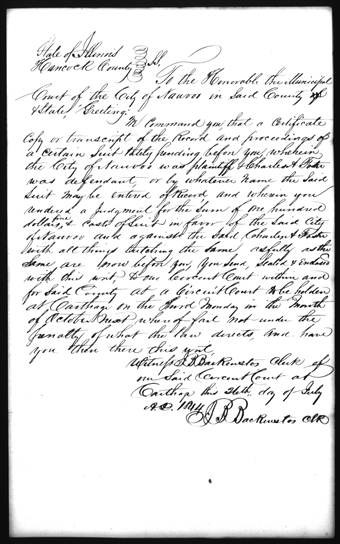 State of Illinois
Hancock County } Ss.
To the Honorable the Municipal
Court of the City of Nauvoo in Said County
& State, Greeting.
We Command you that a Certificate
Copy or transcript of the Record and proceedings of
a certain Suit lately pending before you, wherein
the City of Nauvoo was plaintiff & Charles A Foster
was defendant, or by whatever name the said
Suit may be entered of Record and wherein you
rendered a Judgment for the Sum of one hundred
dollars & costs of Suit in favor of the Said City
of Nauvoo and against the said Charles A Foster
with all things touching the same as fully as the
same are now before you, you Send, Sealed &
with this writ, to our Circuit Court within and
for Said County at a Circuit Court to be holden
at Carthage on the third Monday in the Month
of October next whereof fail not under the
penalty of what the law directs, and have
you then there this writ.
Witness J. B. Backenstos Clerk of
our Said Circuit Court at
Carthage this day of July
A.D. 1844
J. B. Backenstos Clk